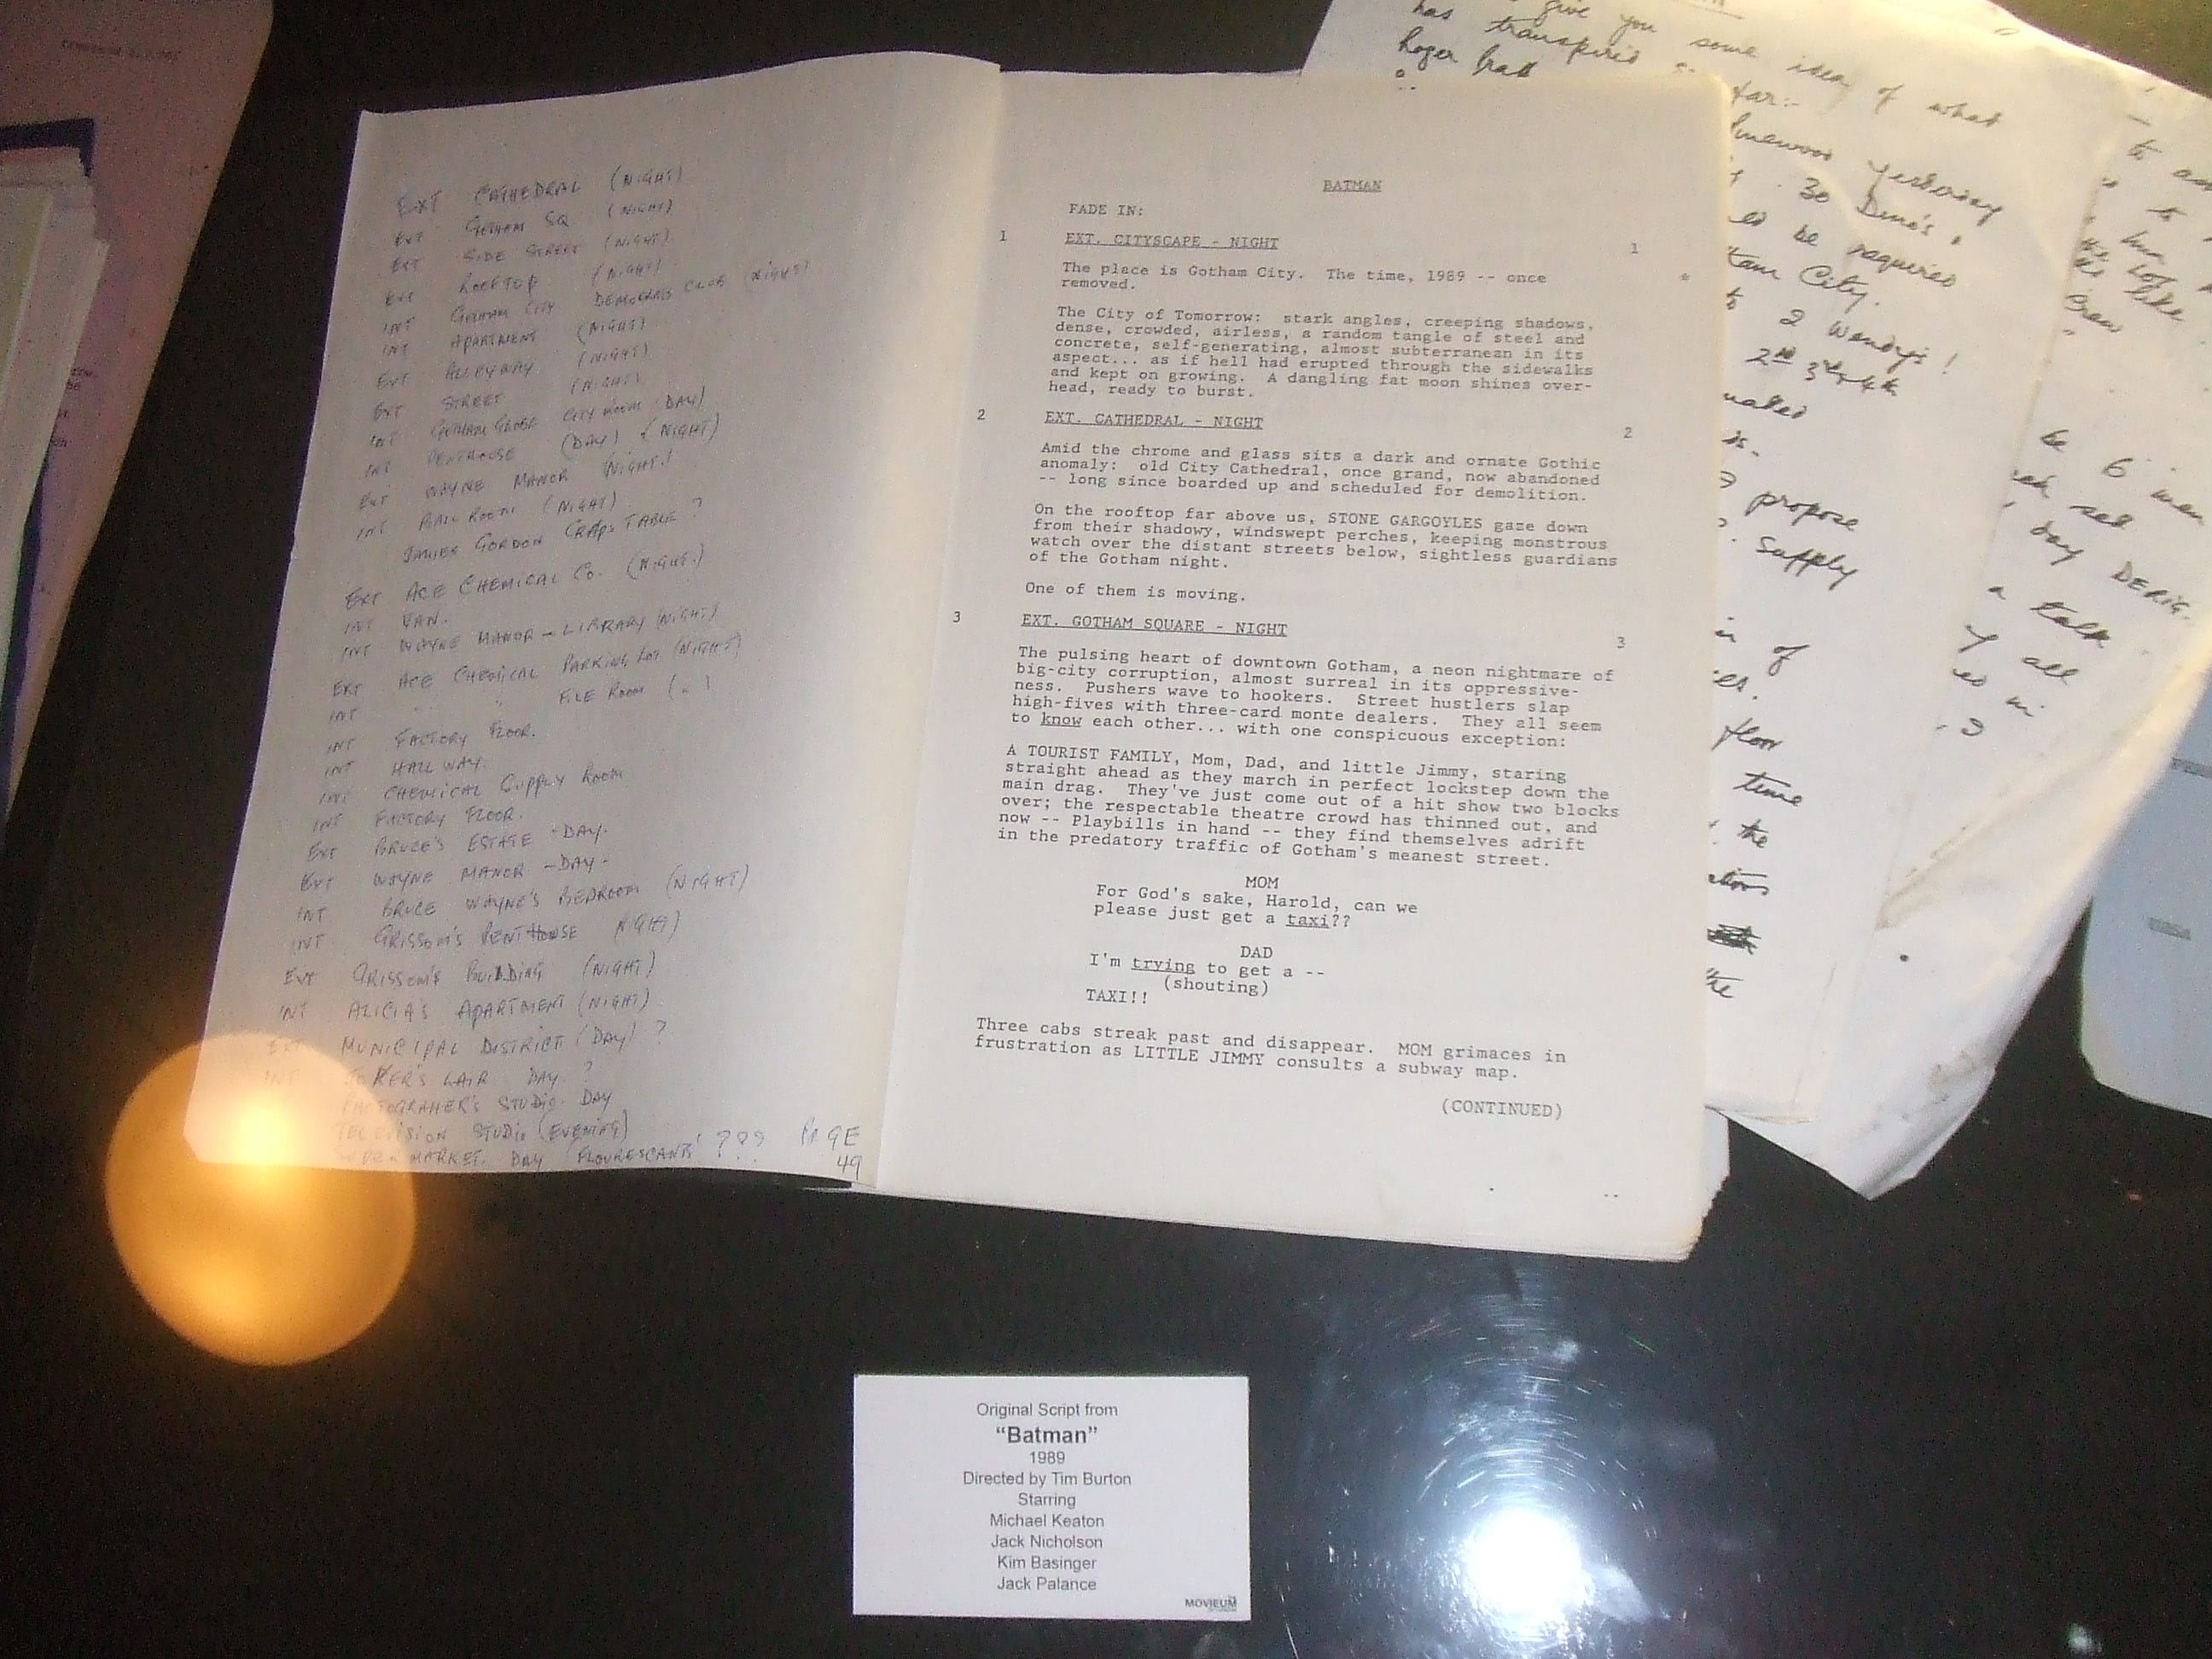 EXT CATHEDRAL (NIGHT)
EXT GOTHAM SQ (NIGHT)
EXT SIDE STREET (NIGHT)
EXT ROOFTOP (NIGHT)
INT GOTHAM CITY DEMOCRATS CLUB (NIGHT)
INT APARTMENT (NIGHT)
EXT ALLEYWAY (NIGHT)
EXT STREET (NIGHT)
INT GOTHAM GLOBE CITY ROOM DAY)
INT PENTHOUSE (DAY) (NIGHT)
EXT WAYNE MANOR (NIGHT)
INT BALL ROOM (NIGHT)
JAMES GORDON CRAPS TABLE ?
EXT ACE CHEMICAL CO. (NIGHT.)
INT VAN.
INT WAYNE MANOR - LIBRARY (NIGHT)
EXT ACE CHEMICAL PARKING LOT (NIGHT)
INT " " FILE ROOM ( " )
INT FACTORY FLOOR.
INT HALLWAY.
INT CHEMICAL SUPPLY ROOM
INT FACTORY FLOOR.
EXT BRUCE'S ESTATE - DAY.
EXT WAYNE MANOR - DAY -
INT BRUCE WAYNE'S BEDROOM (NIGHT)
INT GRISSOM'S PENTHOUSE NIGHT)
EXT GRISSOM'S BUILDING (NIGHT)
INT ALICIA'S APARTMENT (NIGHT)
EXT MUNICIPAL DISTRICT (DAY) ?
INT JOKER'S LAIR DAY. ?
PHOTOGRAHER'S STUDIO. DAY
TELEVISION STUDIO (EVENING)
SUPERMARKET. DAY FLOURESCANTS' ??? PAGE
49
BATMAN
FADE IN:
1 EXT. CITYSCAPE - NIGHT 1
The place is Gotham City. The time, 1989 -- once *
removed.
The City of Tomorrow: stark angles, creeping shadows,
dense, crowded, airless, a random tangle of steel and
concrete, self-generating, almost subterranean in its
aspect... as if hell had erupted through the sidewalks
and kept on growing. A dangling fat moon shines over-
head, ready to burst.
2 EXT. CATHEDRAL - NIGHT 2
Amid the chrome and glass sits a dark and ornate Gothic
anomaly: old City Cathedral, once grand, now abandoned
-- long since boarded up and scheduled for demolition.
On the rooftop far above us, STONE GARGOYLES gaze down
from their shadowy, windswept perches, keeping monstrous
watch over the distant streets below, sightless guardians
of the Gotham night.
One of them is moving.
3 EXT. GOTHAM SQUARE - NIGHT 3
The pulsing heart of downtown Gotham, a neon nightmare of
big-city corruption, almost surreal in its oppressive-
ness. Pushers wave to hookers. Street hustlers slap
high-fives with three-card monte dealers. They all seem
to know each other... with one conspicuous exception:
A TOURIST FAMILY, Mom, Dad, and little Jimmy, staring
straight ahead as they march in perfect lockstep down the
main drag. They've just come out of a hit show two blocks
over; the respectable theatre crowd has thinned out, and
now -- Playbills in hand -- they find themselves adrift
in the predatory traffic of Gotham's meanest street.
MOM
For God's sake, Harold, can we
please just get a taxi??
DAD
I'm trying to get a --
(shouting)
TAXI!!
Three cabs streak past and disappear. MOM grimaces in
frustration as LITTLE JIMMY consults a subway map.
(CONTINUED)
give you some idea of what
has transpired so far:-
Roger had
yesterday
30 Dino's
be required
City.
2 Wendy's !
2nd 3rd + 4th
propose
supply
of
floor
time
the
the
to
to
like
be 6 men
day DERIG.
a talk
all
in
Original Script from
“Batman”
1989
Directed by Tim Burton
Starring
Michael Keaton
Jack Nicholson
Kim Basinger
Jack Palance
MOVIEUM